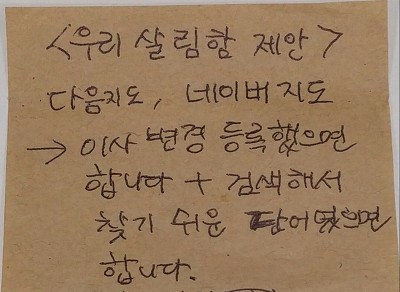 <우리 살림함 제안>
다음지도, 네이버 지도
→ 이사 변경 등록했으면
합니다 + 검색해서
찾기 쉬운 단어였으면
합니다.